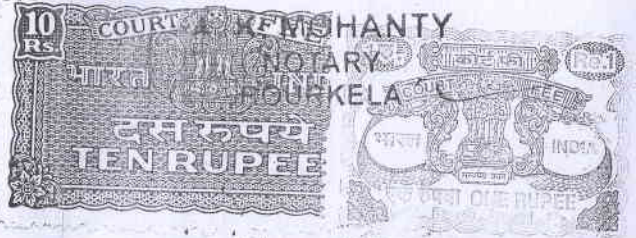 10
Rs
COURT FEE
भारत
दस रुपये
TEN RUPEE
K MOHANTY
NOTARY
ROURKELA
कोर्ट फी
Re.1
COURT FEE
भारत
INDIA
सत्यमेव जयते
एक रुपया ONE RUPEE